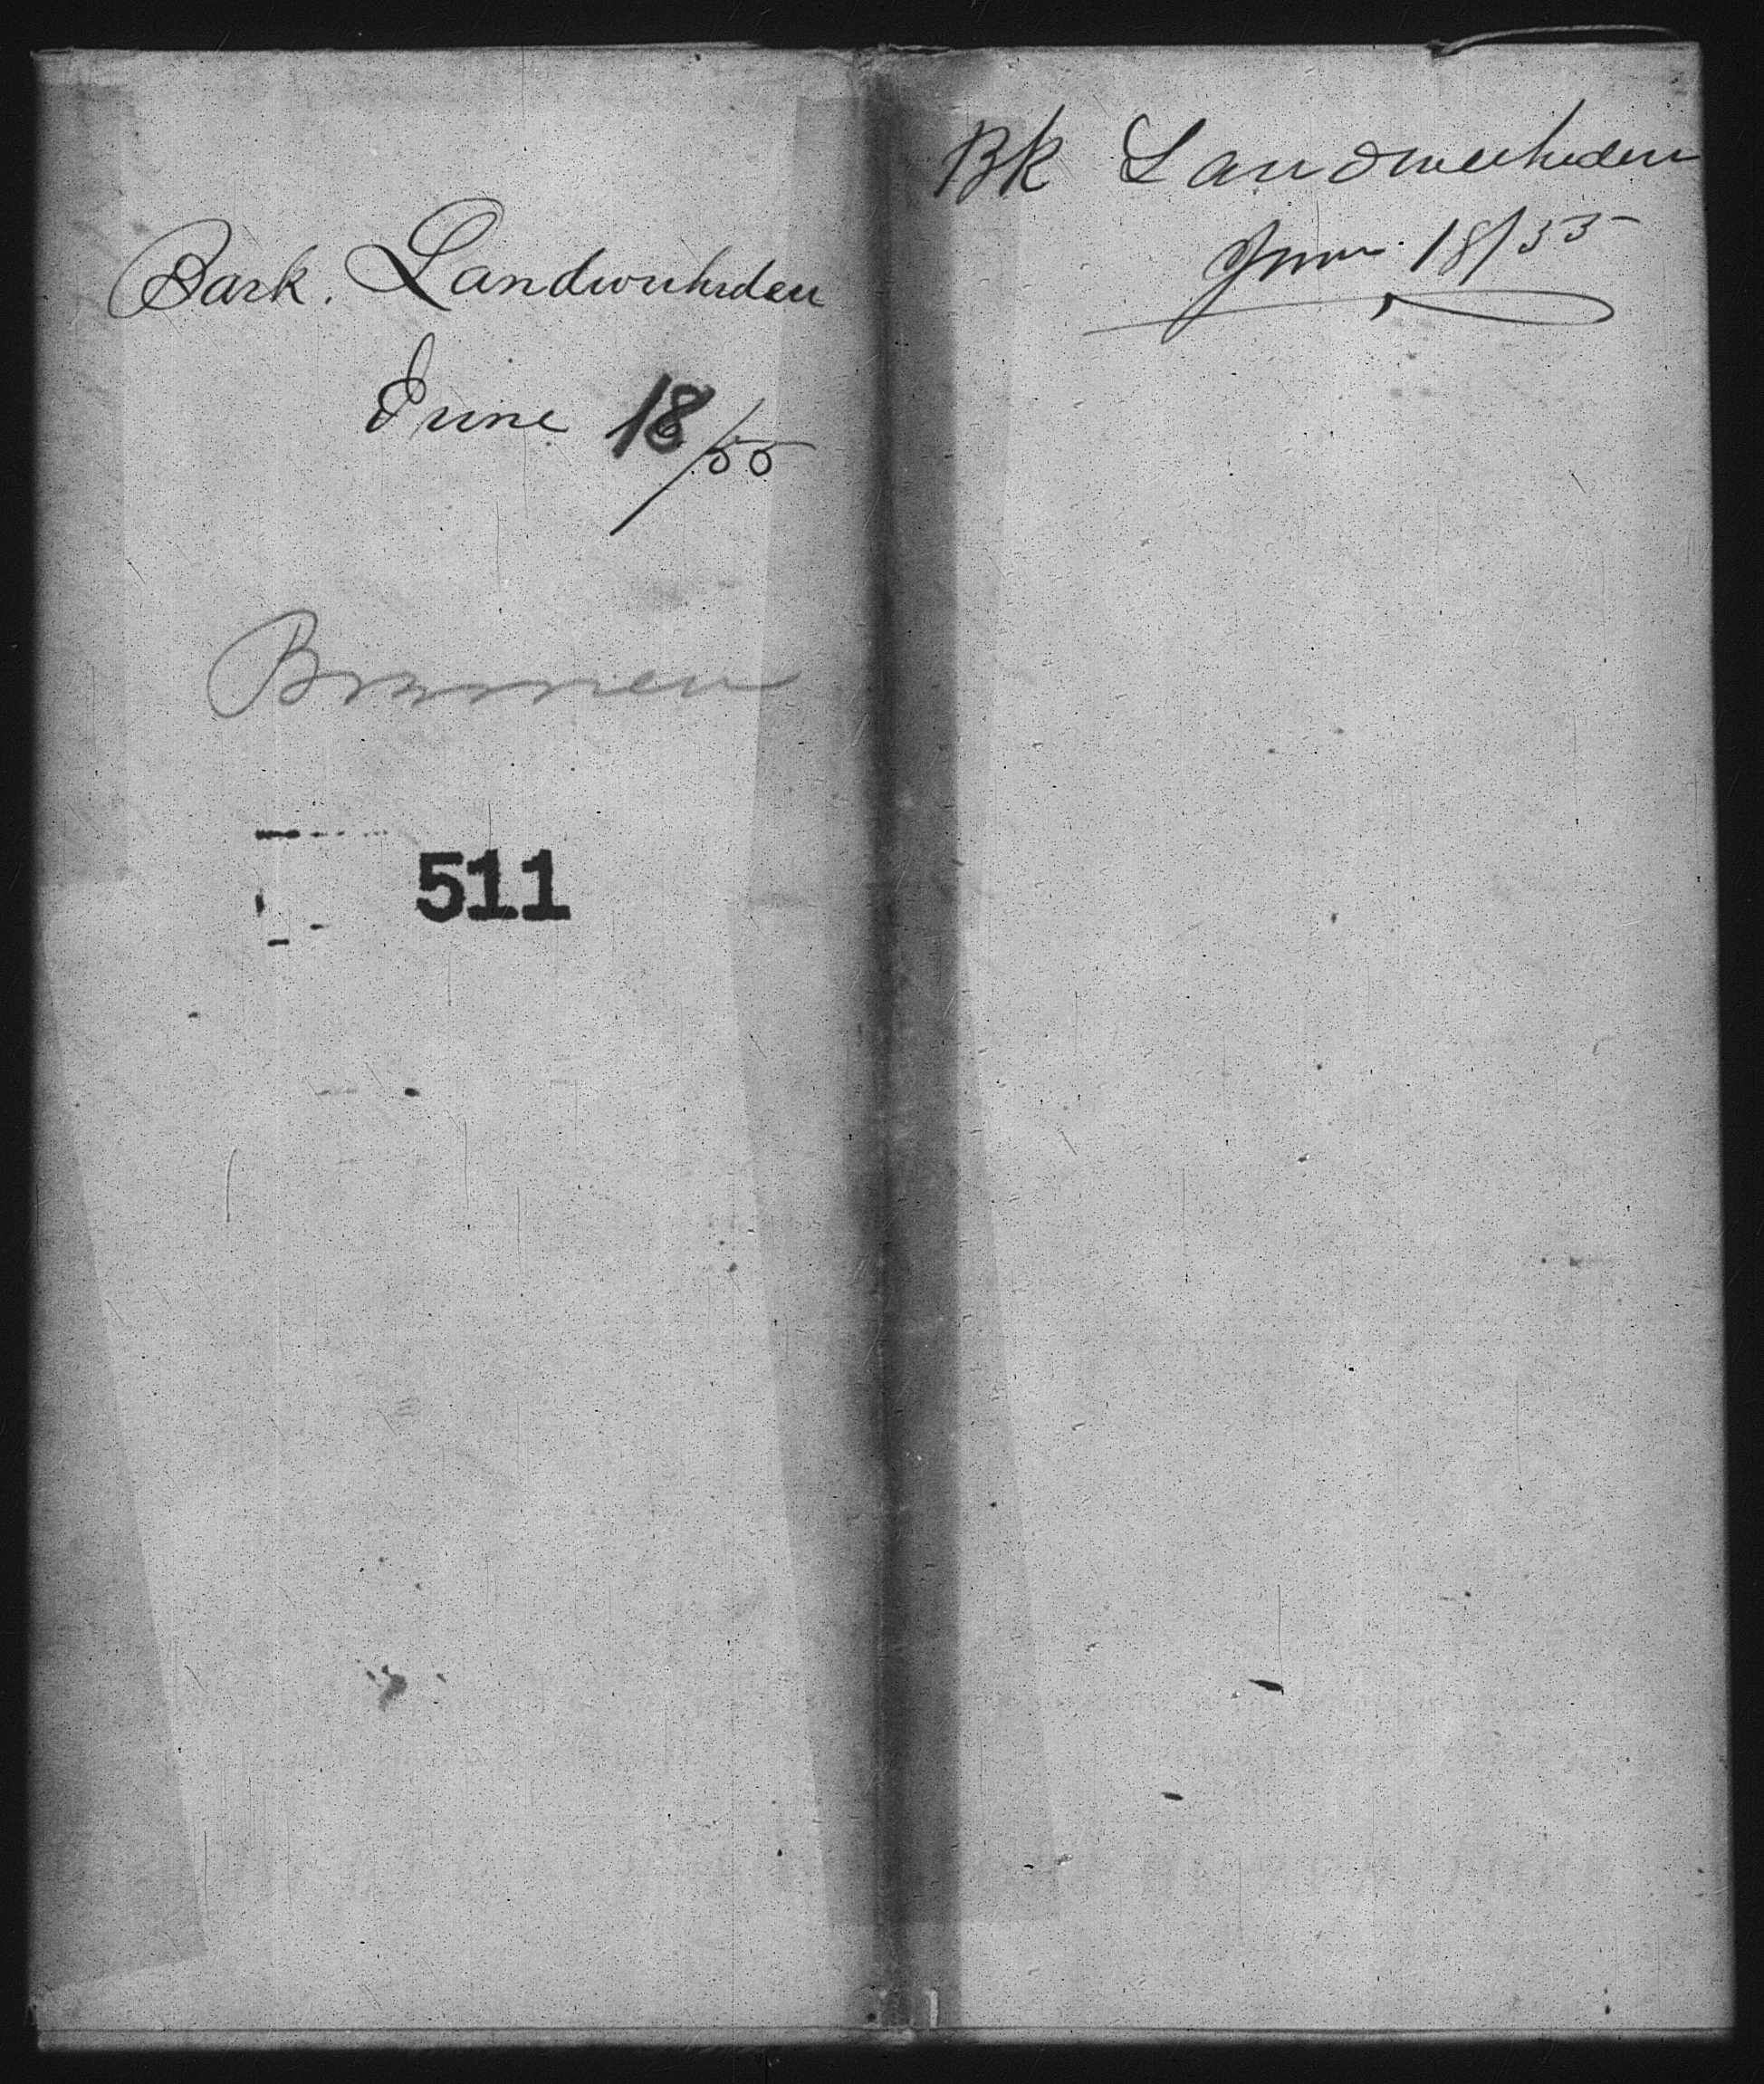 Bark. Landwuhrden
June 18/55
Bremen
511
Bk Landwuhrden
June 18/55